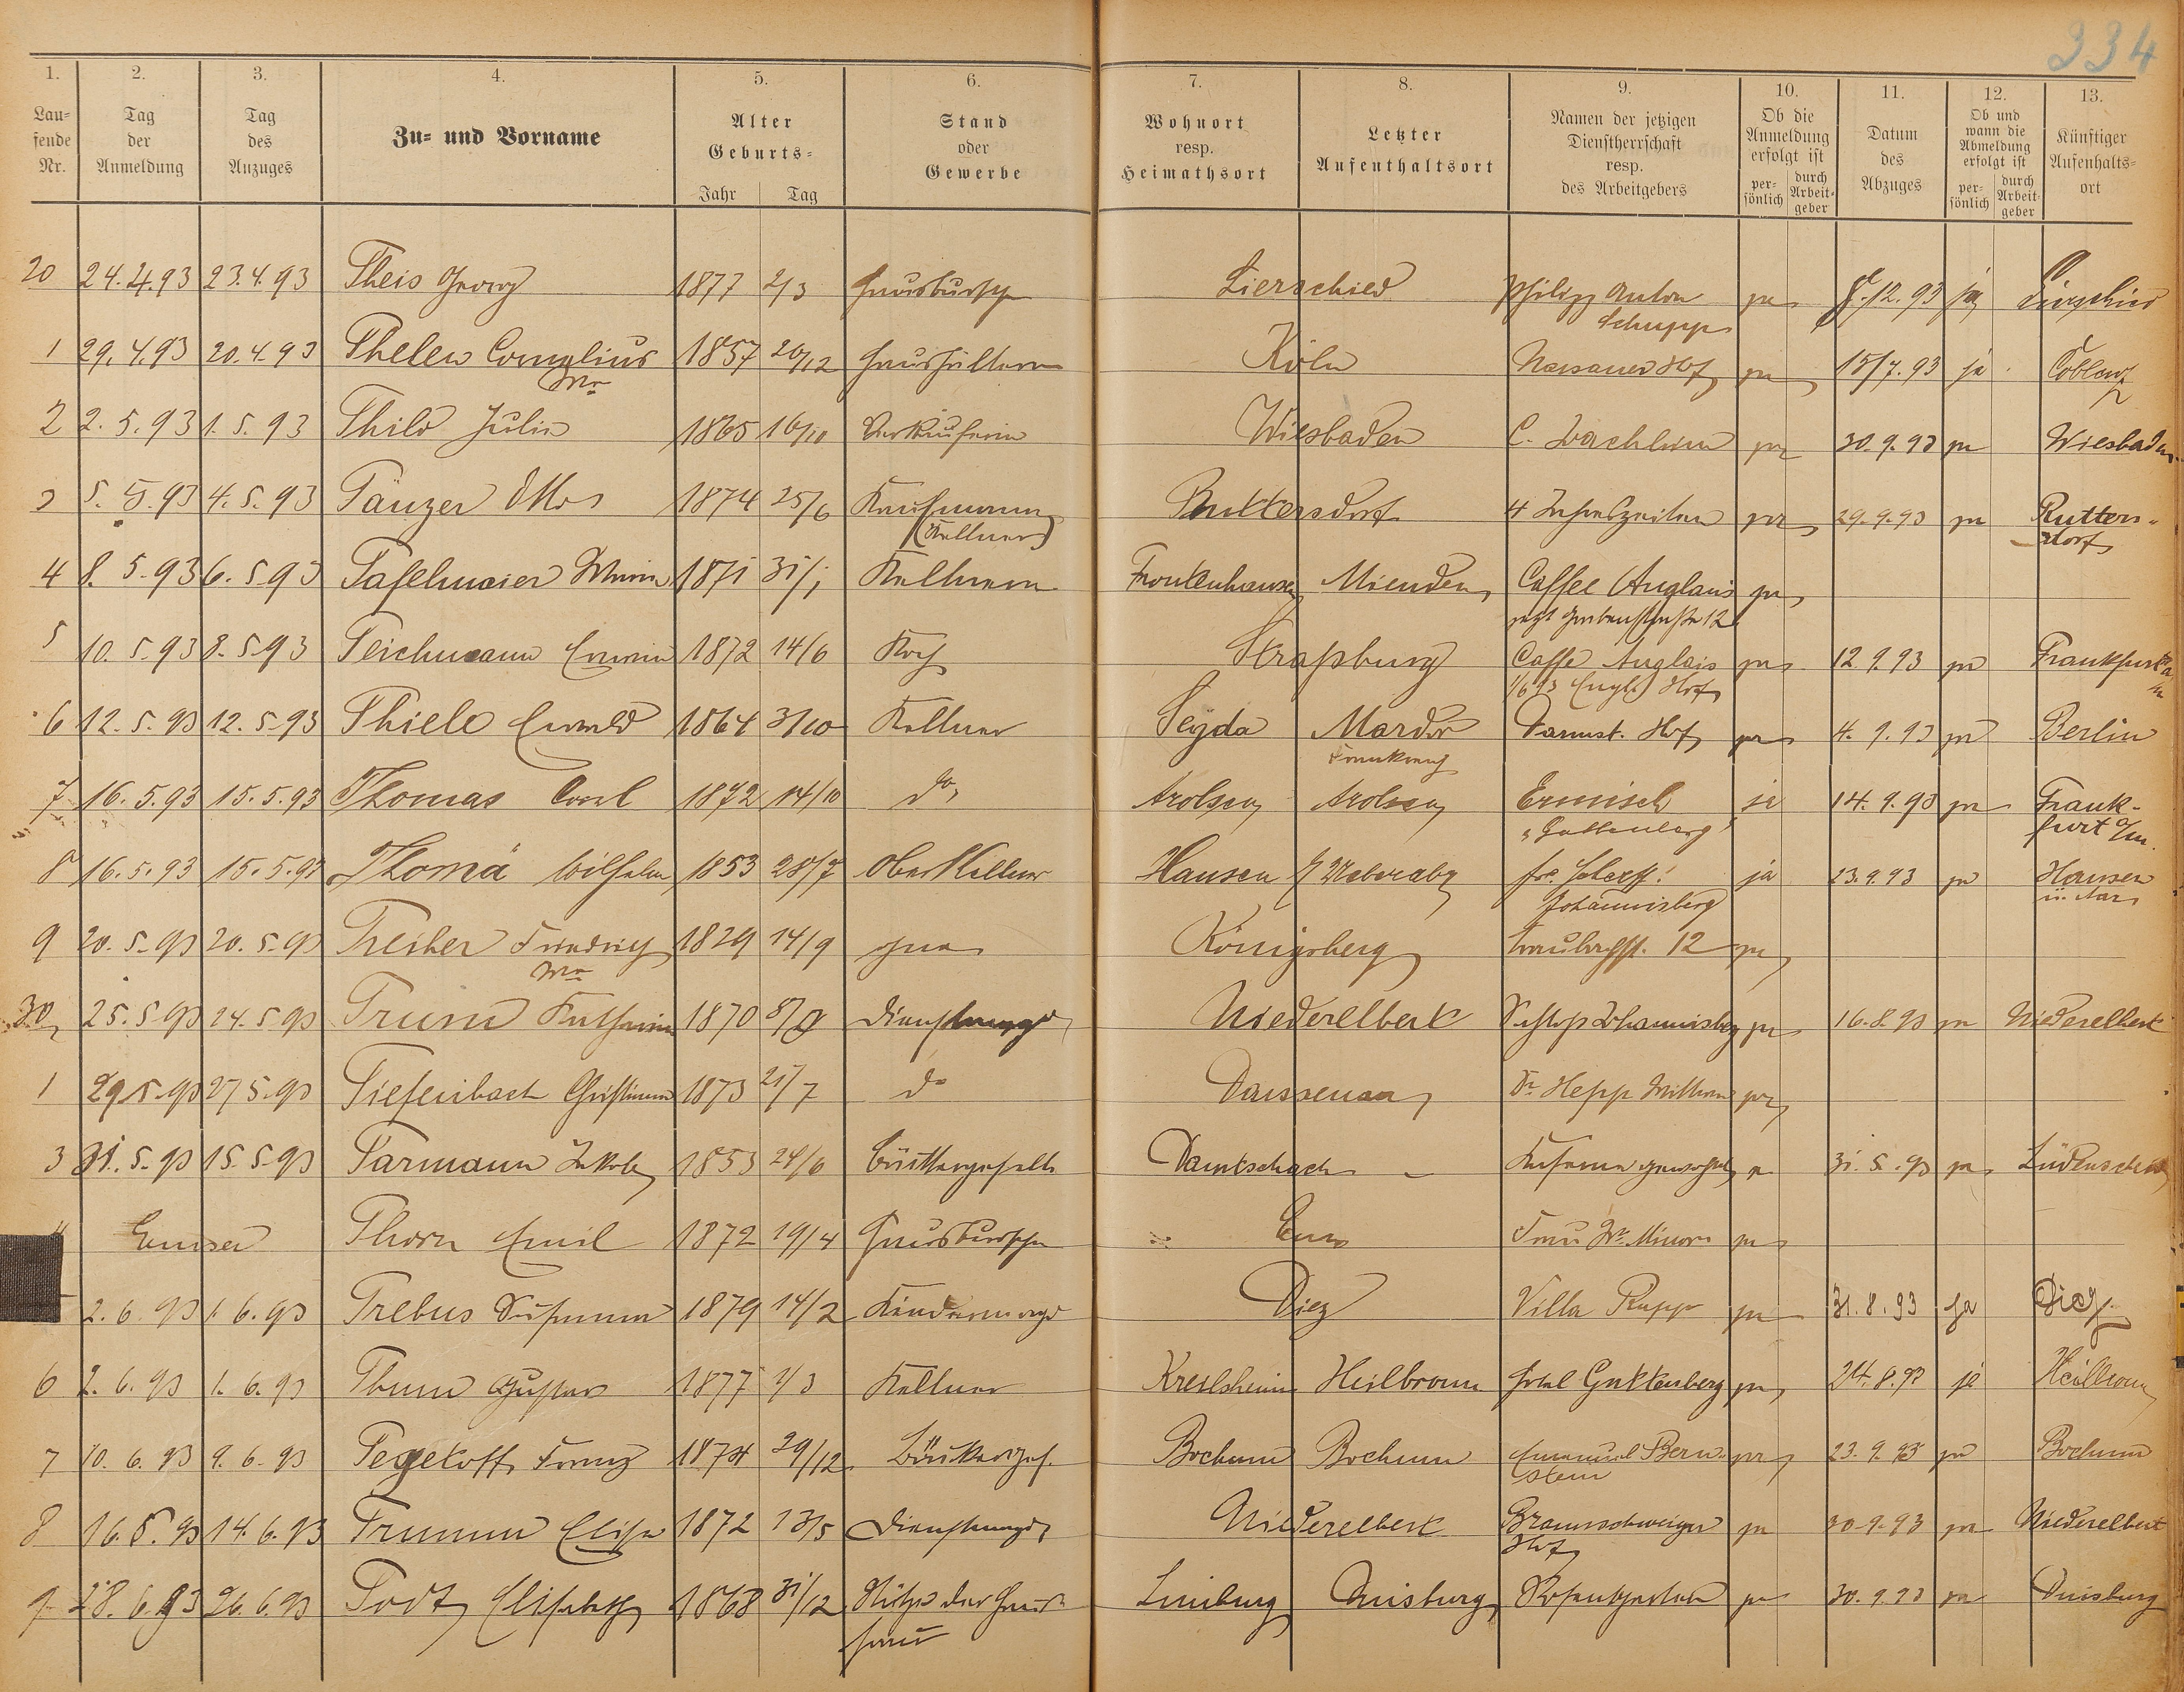 334
1. 2. 3. 4. 5. 6. 7. 8. 9. 10. 11. 12. 13.
Laufende Nr. | Tag der Anmeldung | Tag des Anzuges | Zu- und Vorname | Alter Geburts- Jahr Tag | Stand oder Gewerbe | Wohnort resp. Heimathsort | Letzter Aufenthaltsort | Namen der jetzigen Dienstherrschaft resp. des Arbeitgebers | Ob die Anmeldung erfolgt ist persönlich durch Arbeitgeber | Datum des Abzuges | Ob und wann die Abmeldung erfolgt ist persönlich durch Arbeitgeber | Künftiger Aufenhaltsort
20 24.4.93 23.4.93 Theis Georg 1877 2/3 Hausbursche Lierschied Philipp Anton ja 12.93 ja Lierschied
Schupp
1 29.4.93 20.4.93 Thelen Cornelius 1857 20/12 Köln Nassauer Hof ja 15/7.93 ja Coblenz
2 2.5.93 1.5.93 Thilo Julie 1865 16/10 Verkäuferin Wiesbaden C. ja 30.9.93 ja Wiesbaden
3 5.5.93 4.5.93 Tänzer Otto 1874 25/6 Kaufmann Ruttersdorf 4 Jahreszeiten ja 29.9.93 ja Rutters-
(Kellner) dorf
4 8.5.93 6.5.93 Tafelmaier 1871 31/1 Kellnerin Frontenhausen Caffee Anglais ja
jetzt Grabenstraße 12
5 10.5.93 8.5.93 Teichmann Erwin 1872 14/6 Koch Straßburg Caffe Anglais ja 12.9.93 ja Frankfurt a/
1/6 93 Engl. Hof m
6 12.5.93 12.5.93 Thiele Ewald 1864 3/10 Kellner Seyda Darmst. Hof ja 4.9.93 ja Berlin
Frankreich
7 16.5.93 15.5.93 Thomas Carl 1872 14/10 do Arolsen Arolsen Ermisch ja 14.9.93 ja Frank-
"Guttenberg" furt a/m.
8 16.5.93 15.5.93 Thomä Wilhelm 1853 28/7 Oberkellner Hausen ja 23.9.93 ja Hausen
Johannisberg ü. Aar
9 20.5.93 20.5.93 Treiber Friedrich 1829 14/9 Königsberg 12 ja
30 25.5.93 24.5.93 Trum Katharina 1870 8/9 Dienstmagd Niederelbert Schloß Johannisberg ja 16.8.93 ja Niederelbert
1 29.5.93 27.5.93 Tiefenbach Christiane 1873 21/7 do Dausenau Dr. Hepp Wittwe ja
3 31.5.93 15.5.93 Tarmann Jakob 1853 24/6 Damtschach ja 31.5.93 ja Lüdenscheid
4 Emser Thorn Emil 1872 19/4 Hausbursche Ems Frau ja
2.6.93 1.6.93 Trebus Susanna 1879 14/2 Kindermagd Diez Villa Rupp ja 31.8.93 ja Diez
6 2.6.93 1.6.93 Thum Gustav 1877 1/3 Kellner Kreilsheim Heilbronn Hotel Guttenberg ja 24.8.93 ja Heilbronn
7 10.6.93 9.6.93 Tegekoff Franz 1874 29/12 Bäckerges. Bochum Bochum Emanuel Bern- ja 23.9.93 ja Bochum
stein
8 16.6.93 14.6.93 Trumm Elise 1872 13/5 Dienstmagd Niederelbert Braunschweiger ja 30.9.93 ja Niederelbert
Hof
9 28.6.93 26.6.93 Todt Elisabeth 1868 31/12 Stütze der Haus- Limburg Duisburg ja 30.9.93 ja Duisburg
frau